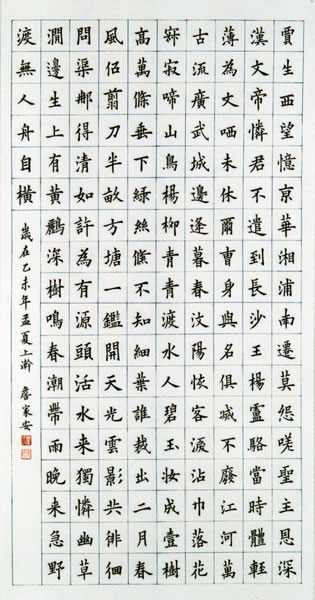 賈生西望憶京華湘浦南遷莫怨嗟聖主恩深
漢文帝憐君不遣到長沙王楊盧駱當時體輕
薄為文哂未休爾曹身與名俱滅不廢江河萬
古流廣武城邊逢暮春汶陽恢客淚沾巾落花
寂寂啼山鳥楊柳青青渡水人碧玉妝成壹樹
高萬條垂下綠絲絛不知細葉誰裁出二月春
風佀翦刀半畝方塘一鑑開天光雲影共徘徊
問渠那得清如許為有源頭活水来獨憐幽草
澗邊生上有黃鸝深樹鳴春潮帶雨晚来急野
渡無人舟自橫
歲在乙未年孟夏上澣 詹家安